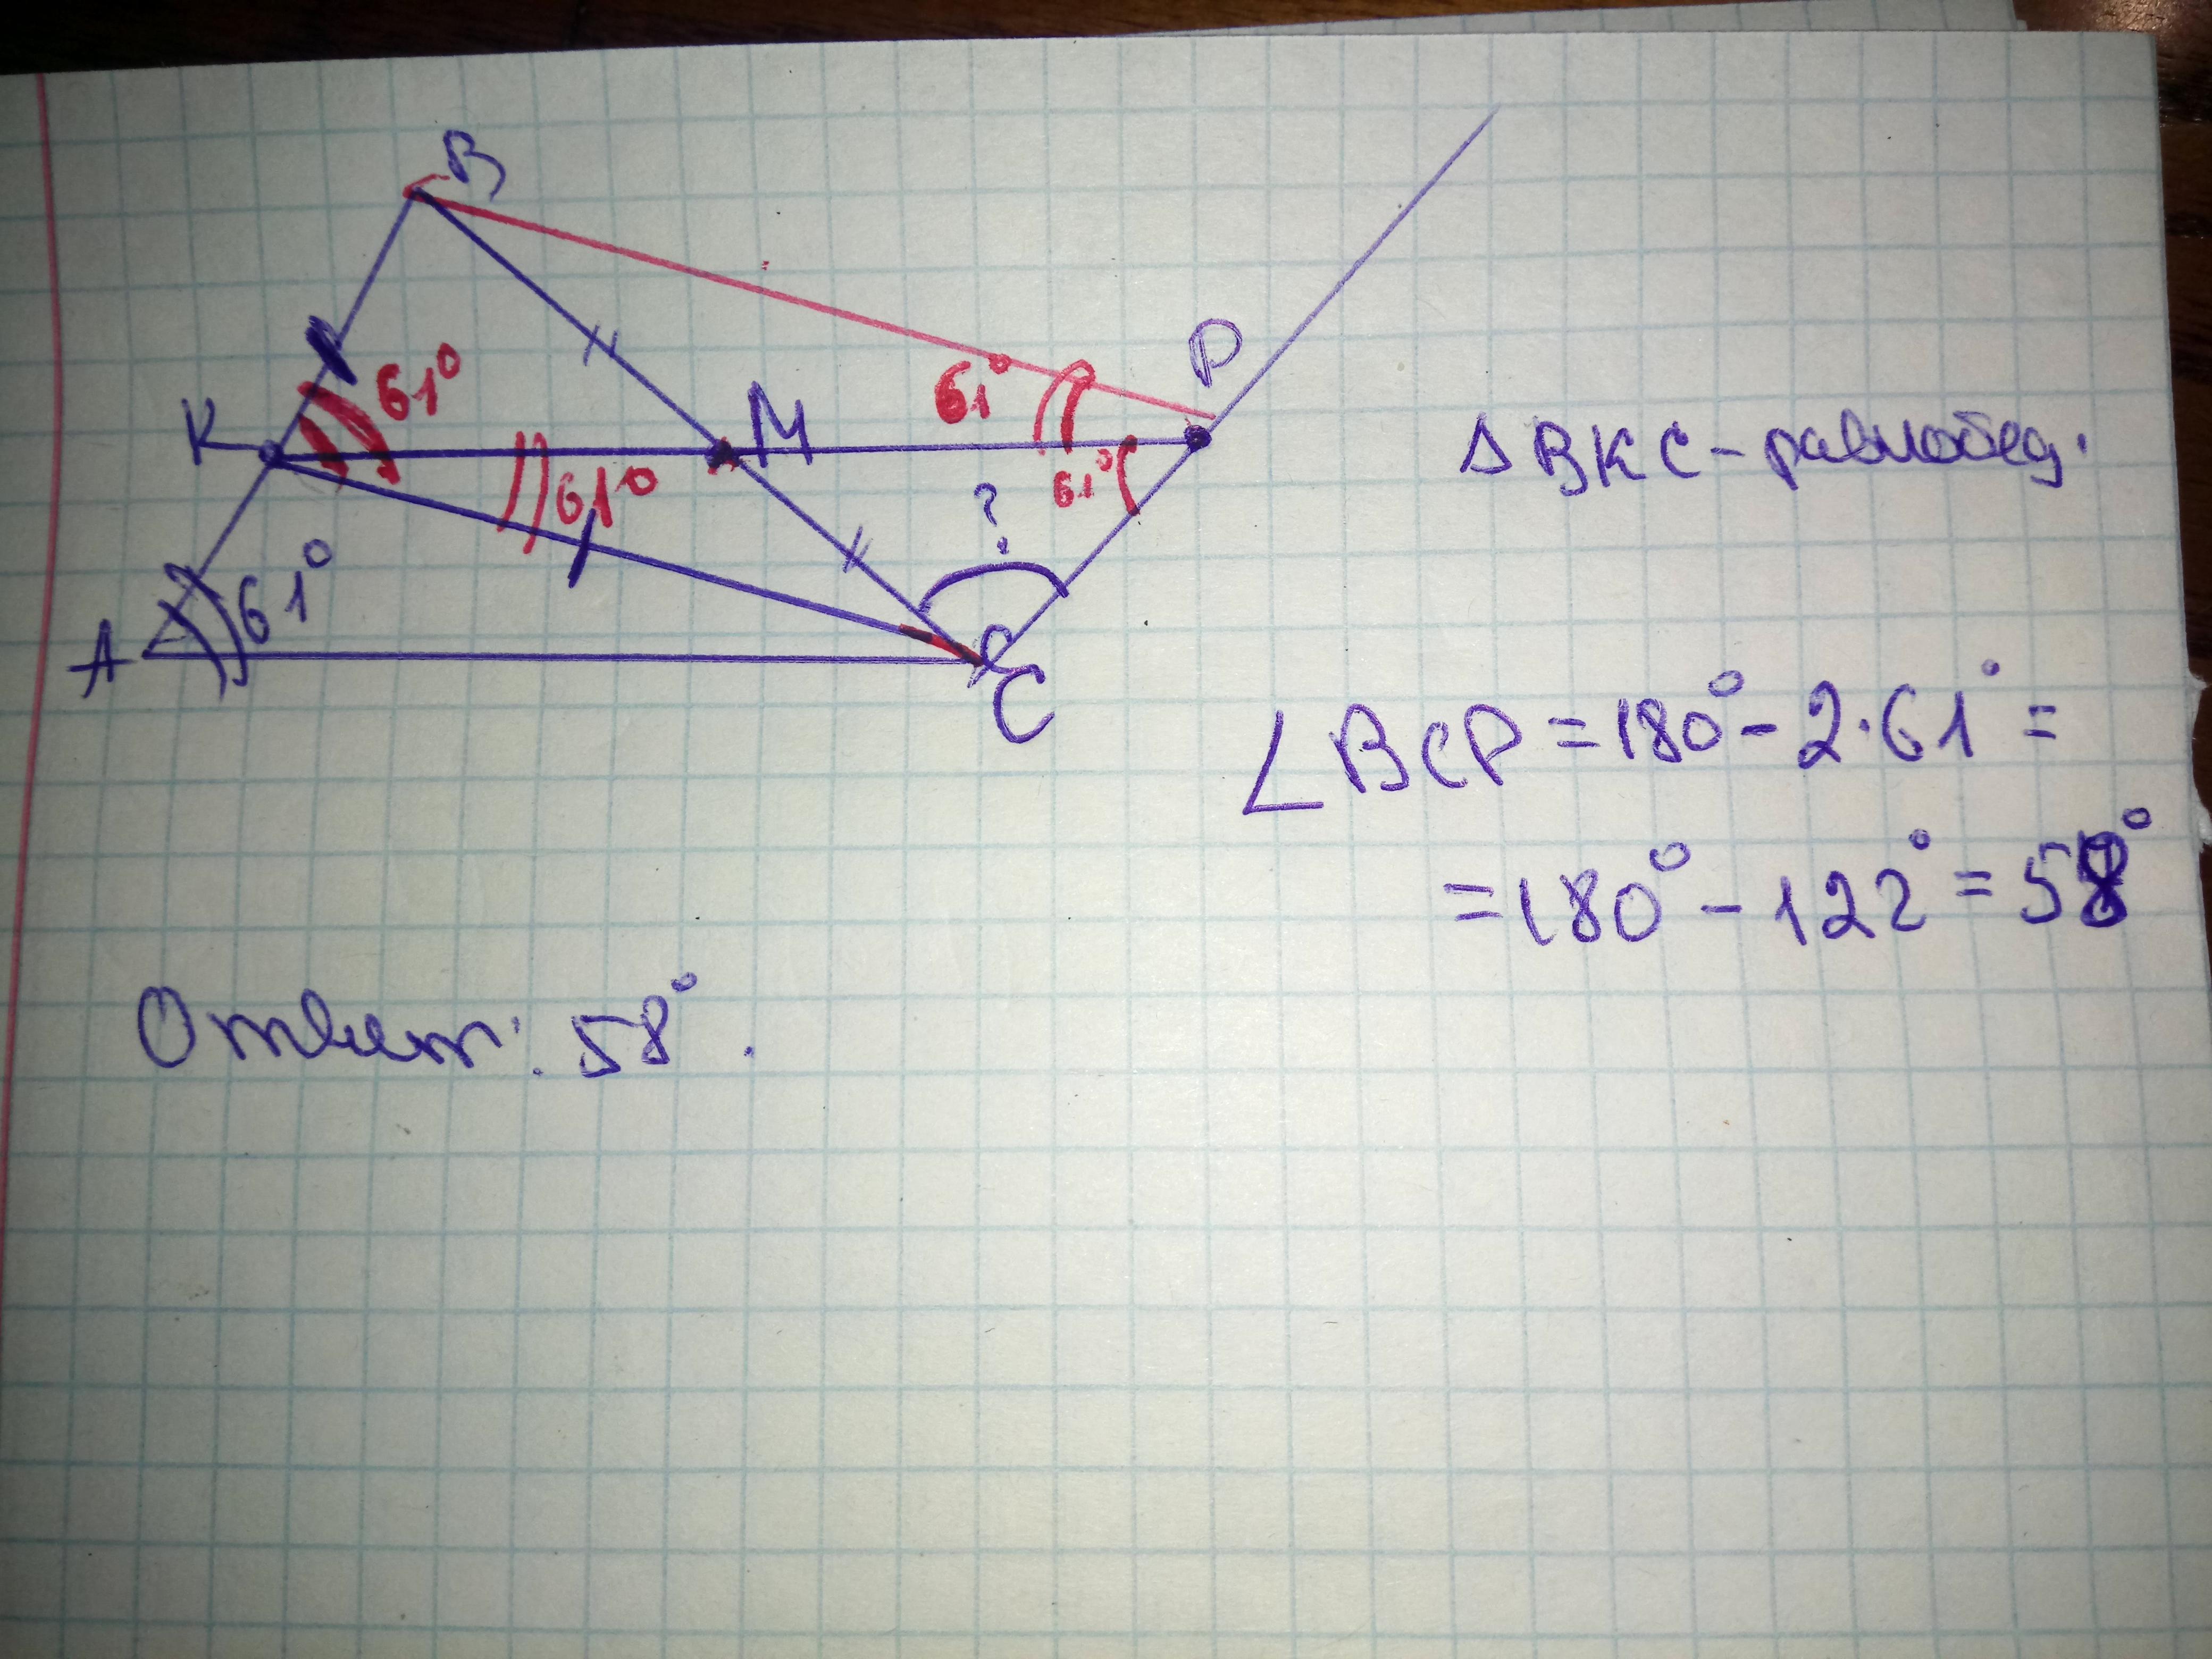 B
P
K
61°
M
61°
61°
61°
?
A
61°
C
Δ BKC - равнобед.
∠BCP = 180° - 2·61° =
= 180° - 122° = 58°
Ответ: 58°.